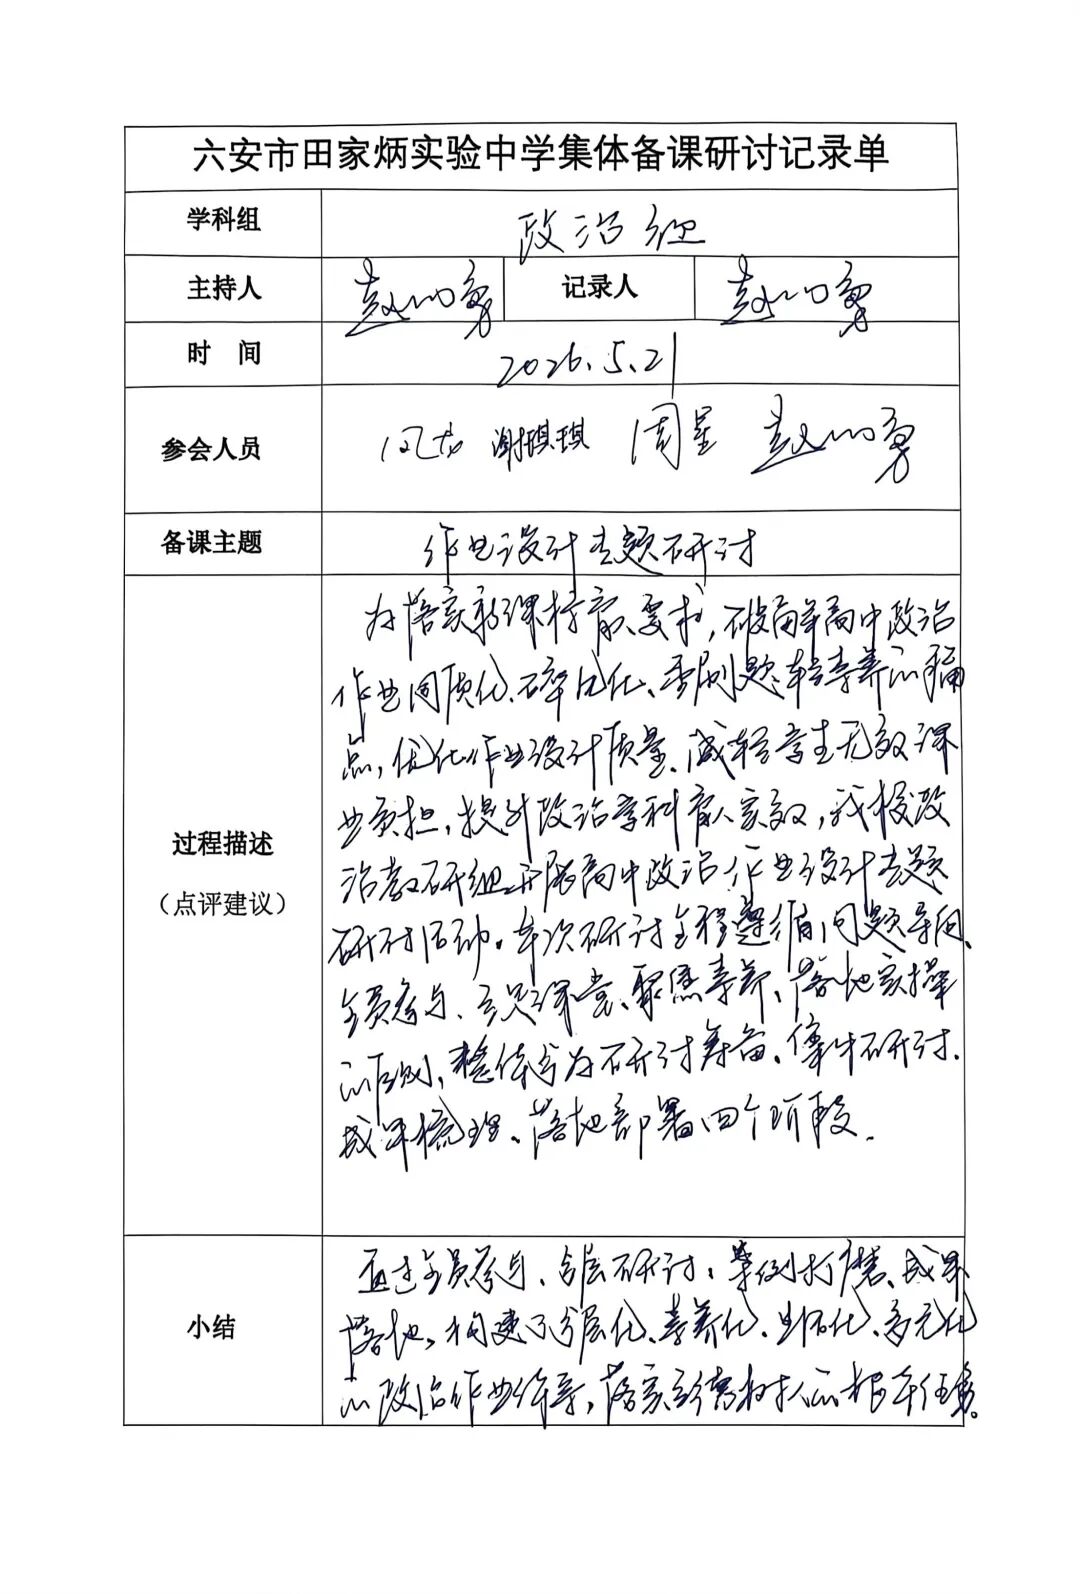 六安市田家炳实验中学集体备课研讨记录单
学科组 政治组
主持人 记录人
时 间 2026.5.21
参会人员 谢琪琪 周星
备课主题 作业设计专题研讨
过程描述
(点评建议)
为落实新课标育人要求,破解高中政治
作业同质化、碎片化、重刷题轻素养的痛
点,优化作业设计质量、减轻学生无效课
业负担,提升政治学科育人实效,我校政
治教研组开展高中政治作业设计专题
研讨活动。本次研讨全程遵循问题导向、
全员参与、立足课堂、聚焦素养、落地实操
的原则,整体分为研讨筹备、集中研讨、
成果梳理、落地部署四个阶段。
小结
通过全员参与、分层研讨、案例打磨、成果
落地,构建了分层化、素养化、生活化、多元化
的政治作业体系,落实立德树人的根本任务。